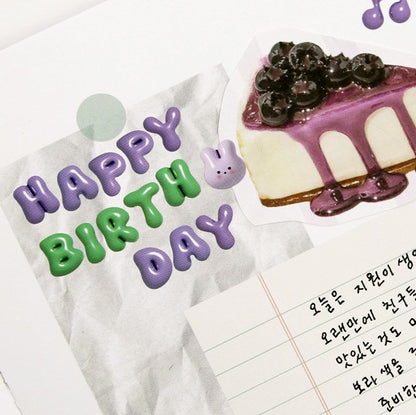 HAPPY
BIRTH
DAY
오늘은 지원이
오랜만에 친구들
맛있는 것도
보라색을
준비한